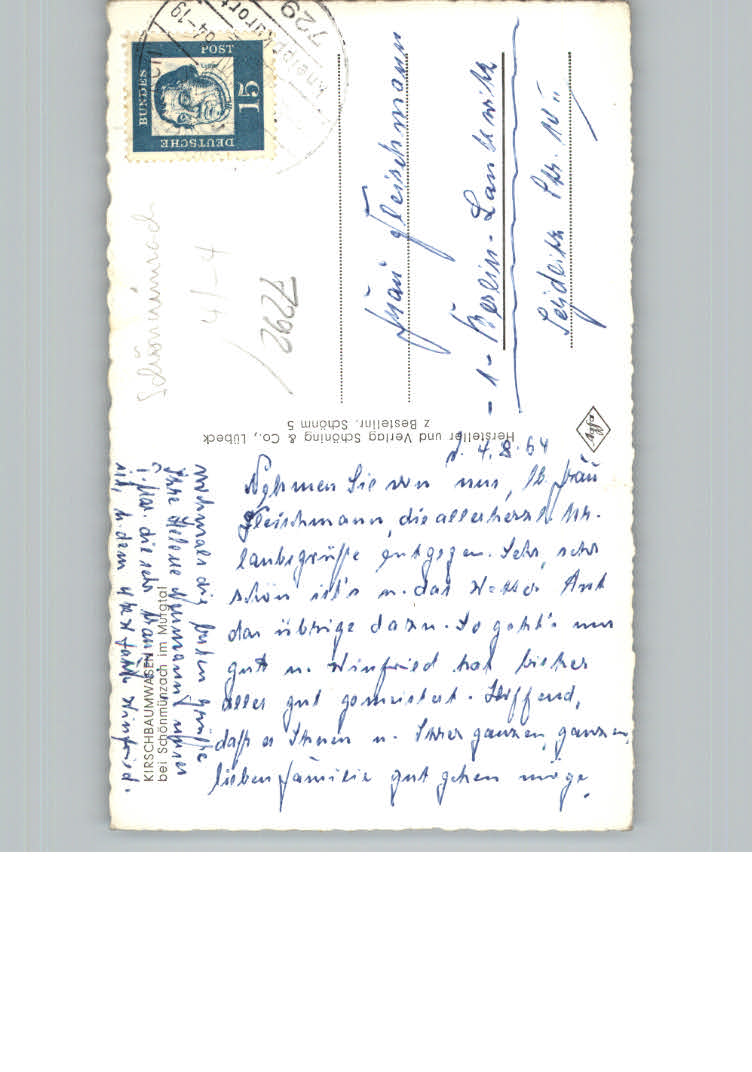 DEUTSCHE
BUNDES
POST
15
729
04-19
Kneippkurort
Schönmünzach
4/-4
7292
Frau Fleischmann
-1- Berlin-Lankwitz
Str. 10 II
Hersteller und Verlag Schöning & Co., Lübeck
z Bestellnr. Schönm 5
Agfa
d. 4.8.64
Nehmen Sie von uns, lb. Frau
Fleischmann, die allerherzl. Ur-
laubsgrüße entgegen. Sehr, sehr
schön ist's u. das Wetter tut
das übrige dazu. So geht's uns
gut u. Winfried hat bisher
alles gut gemeistert. Hoffend,
daß es Ihnen u. Ihrer ganzen, ganzen
lieben Familie gut gehen möge,
nochmals die besten Grüße
Ihre Helene Neumann unser
KIRSCHBAUMWASEN
bei Schönmünzach im Murgtal